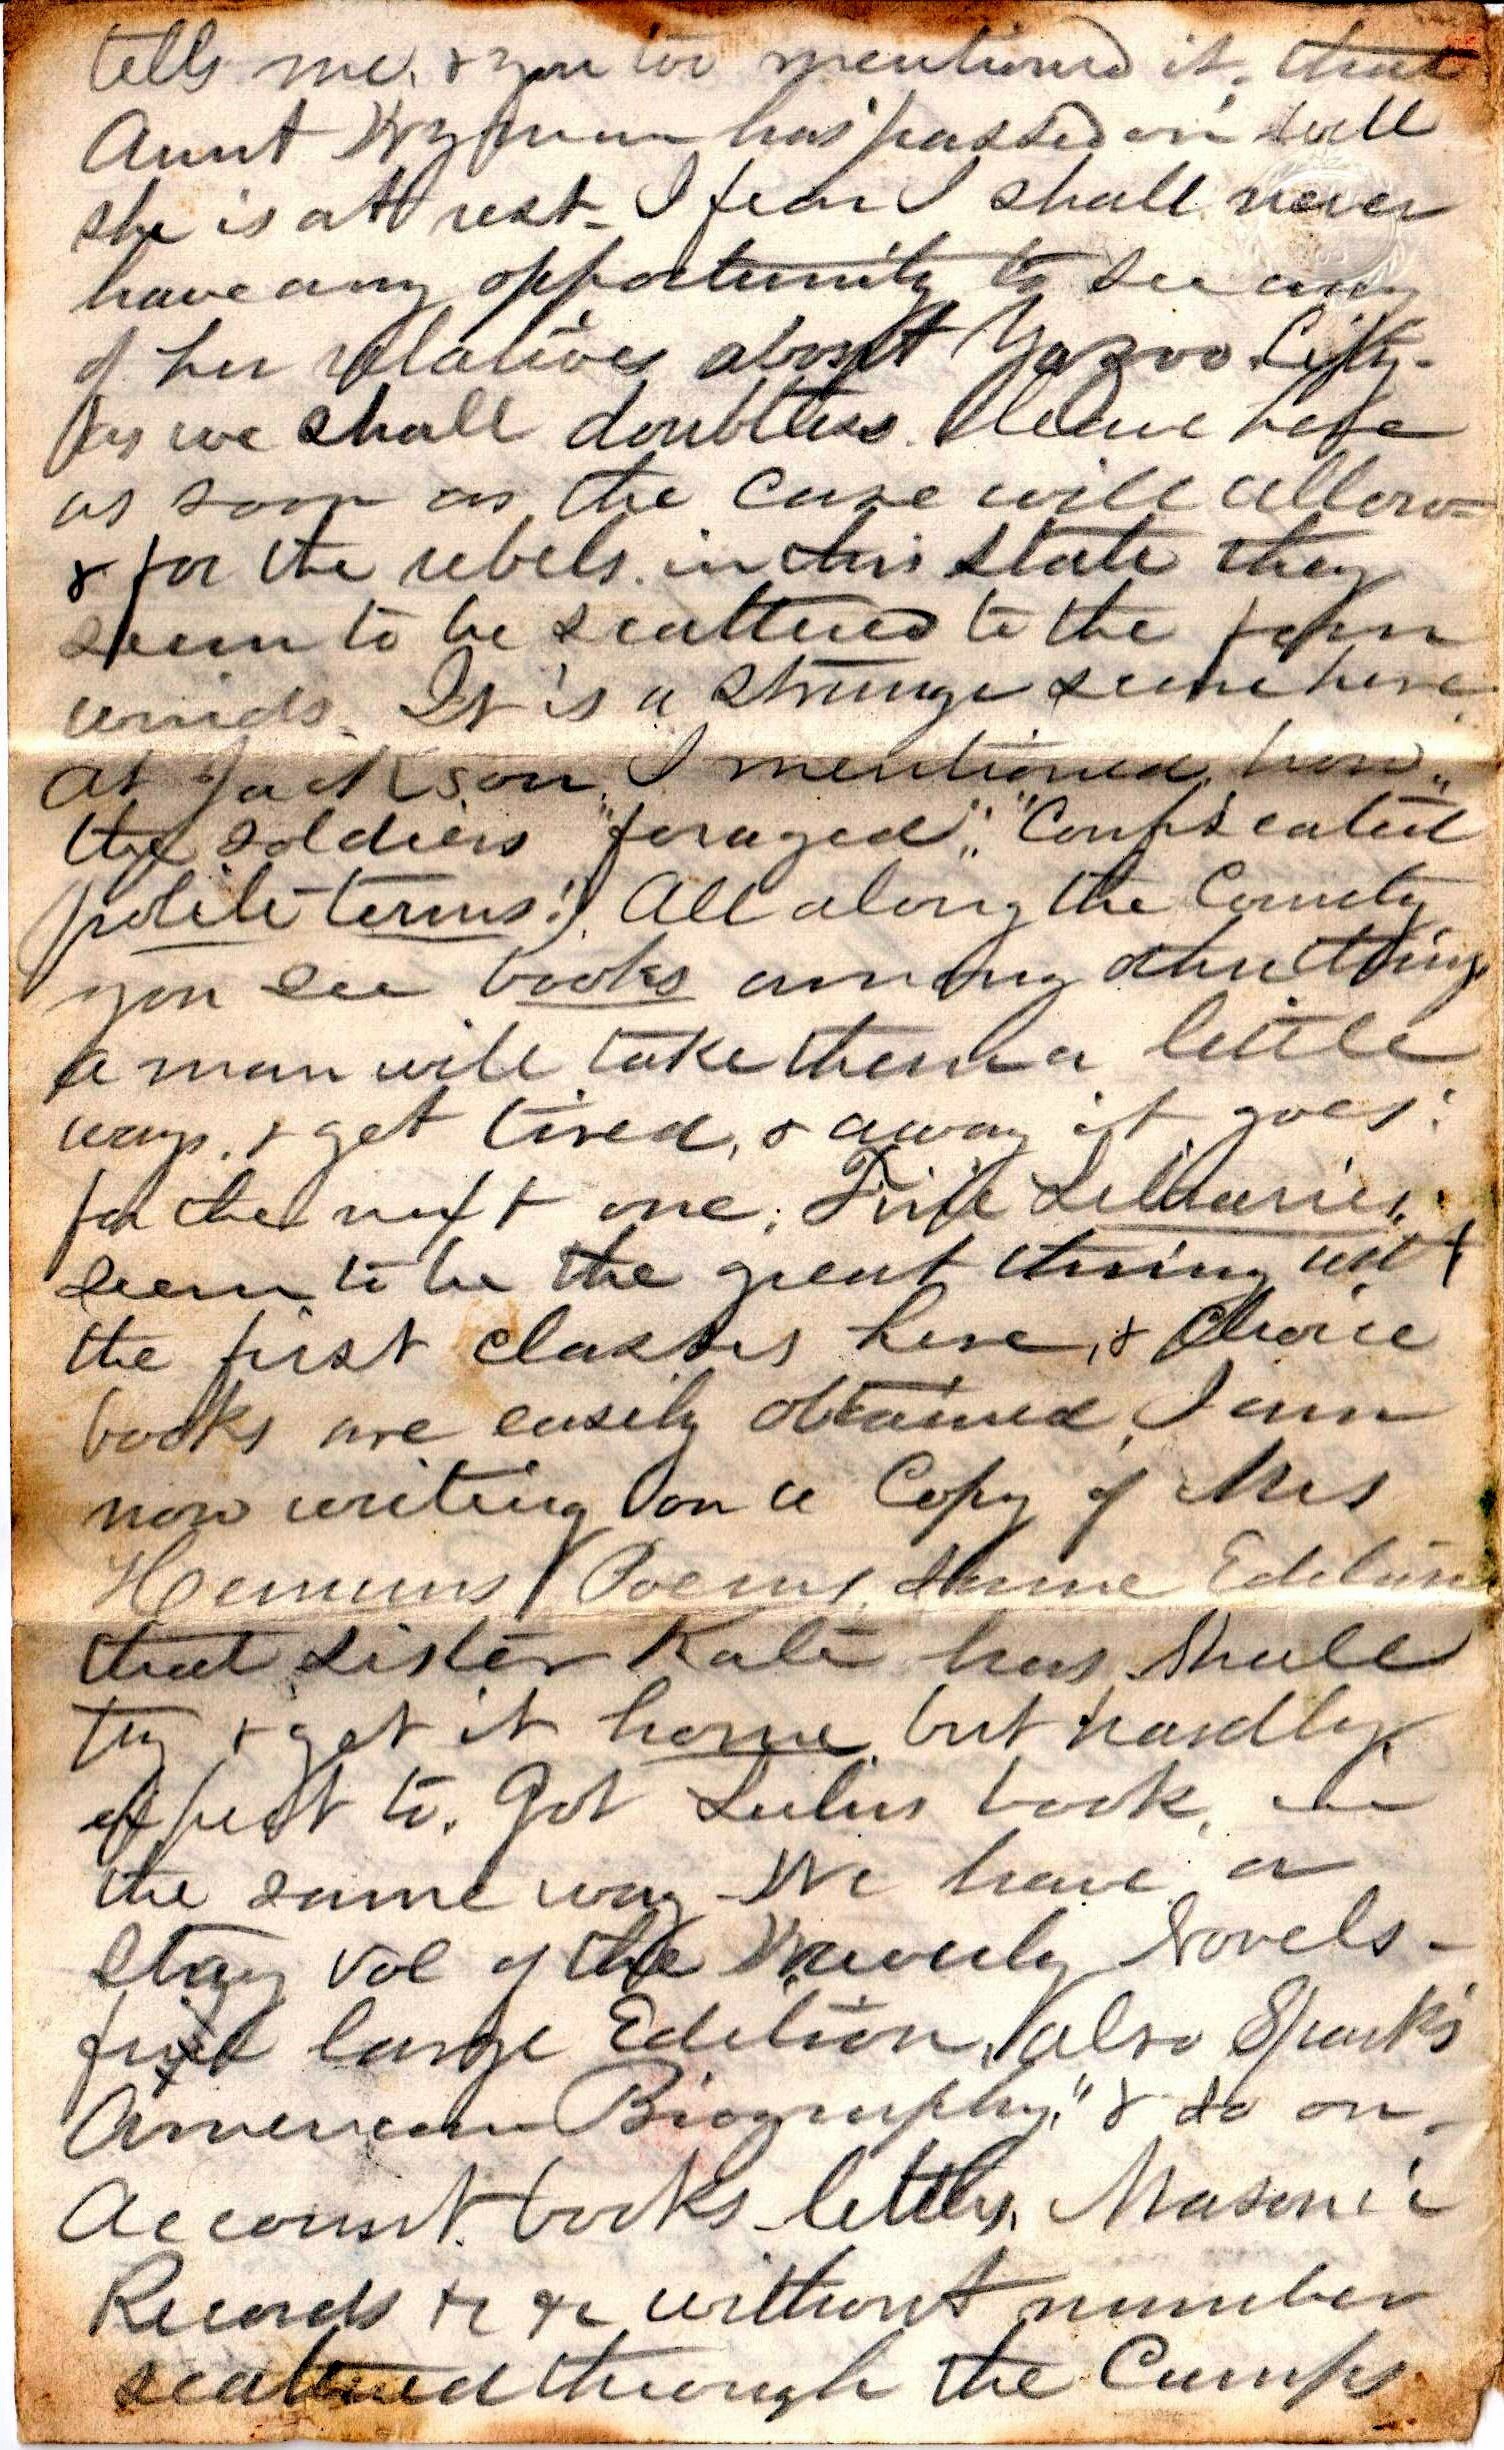 tells me, & you too mentioned it, that
Aunt Wyman has passed on well
she is at rest - I fear I shall never
have any opportunity to see any
of her relatives about Yazoo City -
for we shall doubtless leave here
as soon as the case will allow -
& for the rebels in this state they
seem to be scattered to the four
winds. It is a strange scene here
at Jackson. I mentioned, how
the soldiers "foraged", "Confiscated"
(polite terms!) All along the County
you see books among other things
a man will take them a little
ways, & get tired, & away it goes:
for the next one; Fine Libraries,
seem to be the great thing with
the first classes here, & Choice
books are easily obtained, I am
now writing on a Copy of Mrs
Hemans Poems, same Edition
that sister Kate has Shall
try & get it home but hardly
expect to. Got Lulus book, in
the same way - We have a
stray vol of the Waverly Novels -
first large Edition, also Spark's
American Biography," & so on -
Account books letters, Masonic
Records &c &c without number
scattered through the Camps